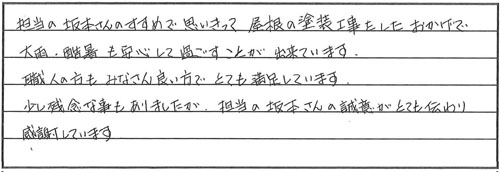 担当の坂本さんのすすめで思いきって屋根の塗装工事をしたおかげで
大雨・酷暑も安心して過ごすことが出来ています。
職人の方もみなさん良い方でとても満足しています。
少し残念な事もありましたが、担当の坂本さんの誠意がとても伝わり
感謝しています